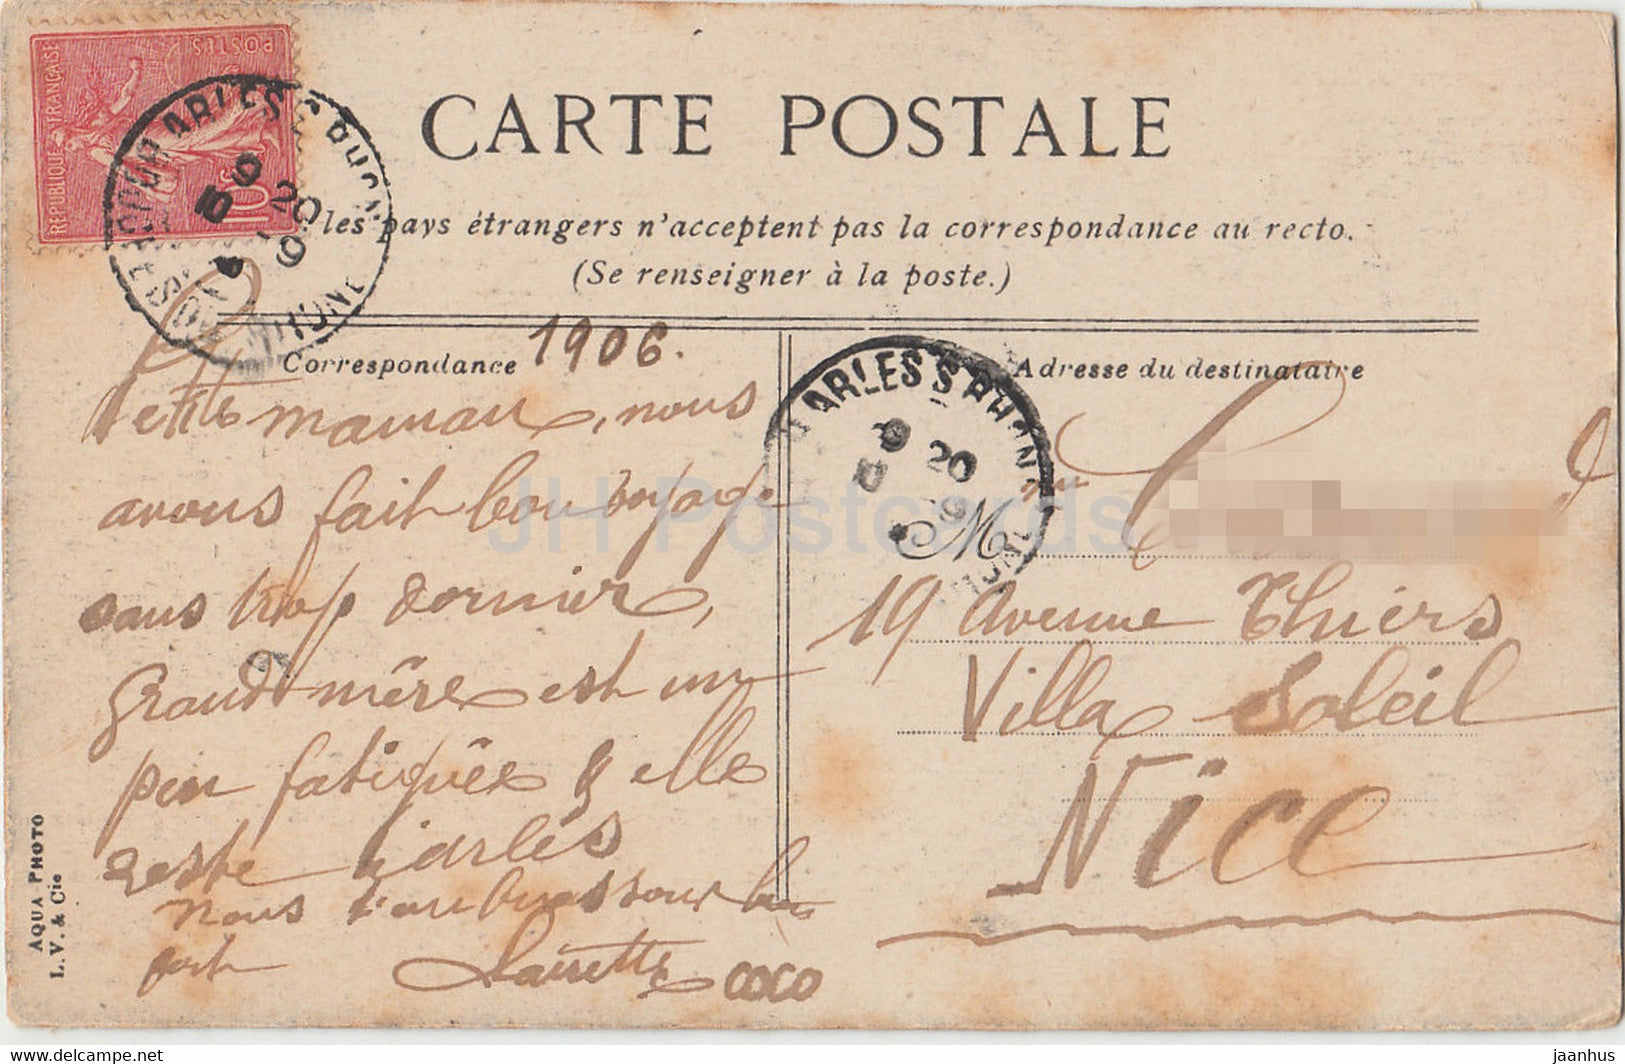 REPUBLIQUE FRANÇAISE
POSTES
10c
ARLES S RHONE
9
20
9
CARTE POSTALE
les pays étrangers n'acceptent pas la correspondance au recto.
(Se renseigner à la poste.)
Correspondance
1906.
Petite maman, nous
avons fait bon voyage
sans trop dormir,
Grand mère est un
peu fatiguée & elle
reste à arles
Nous t'embrassons bien
fort
COCO
Adresse du destinataire
ARLES S RHONE
20
9
M
19 Avenue Thiers
Villa Soleil
Nice
AQUA PHOTO
L. V. & Cie
JH Postcards
www.delcampe.net
jaanhus